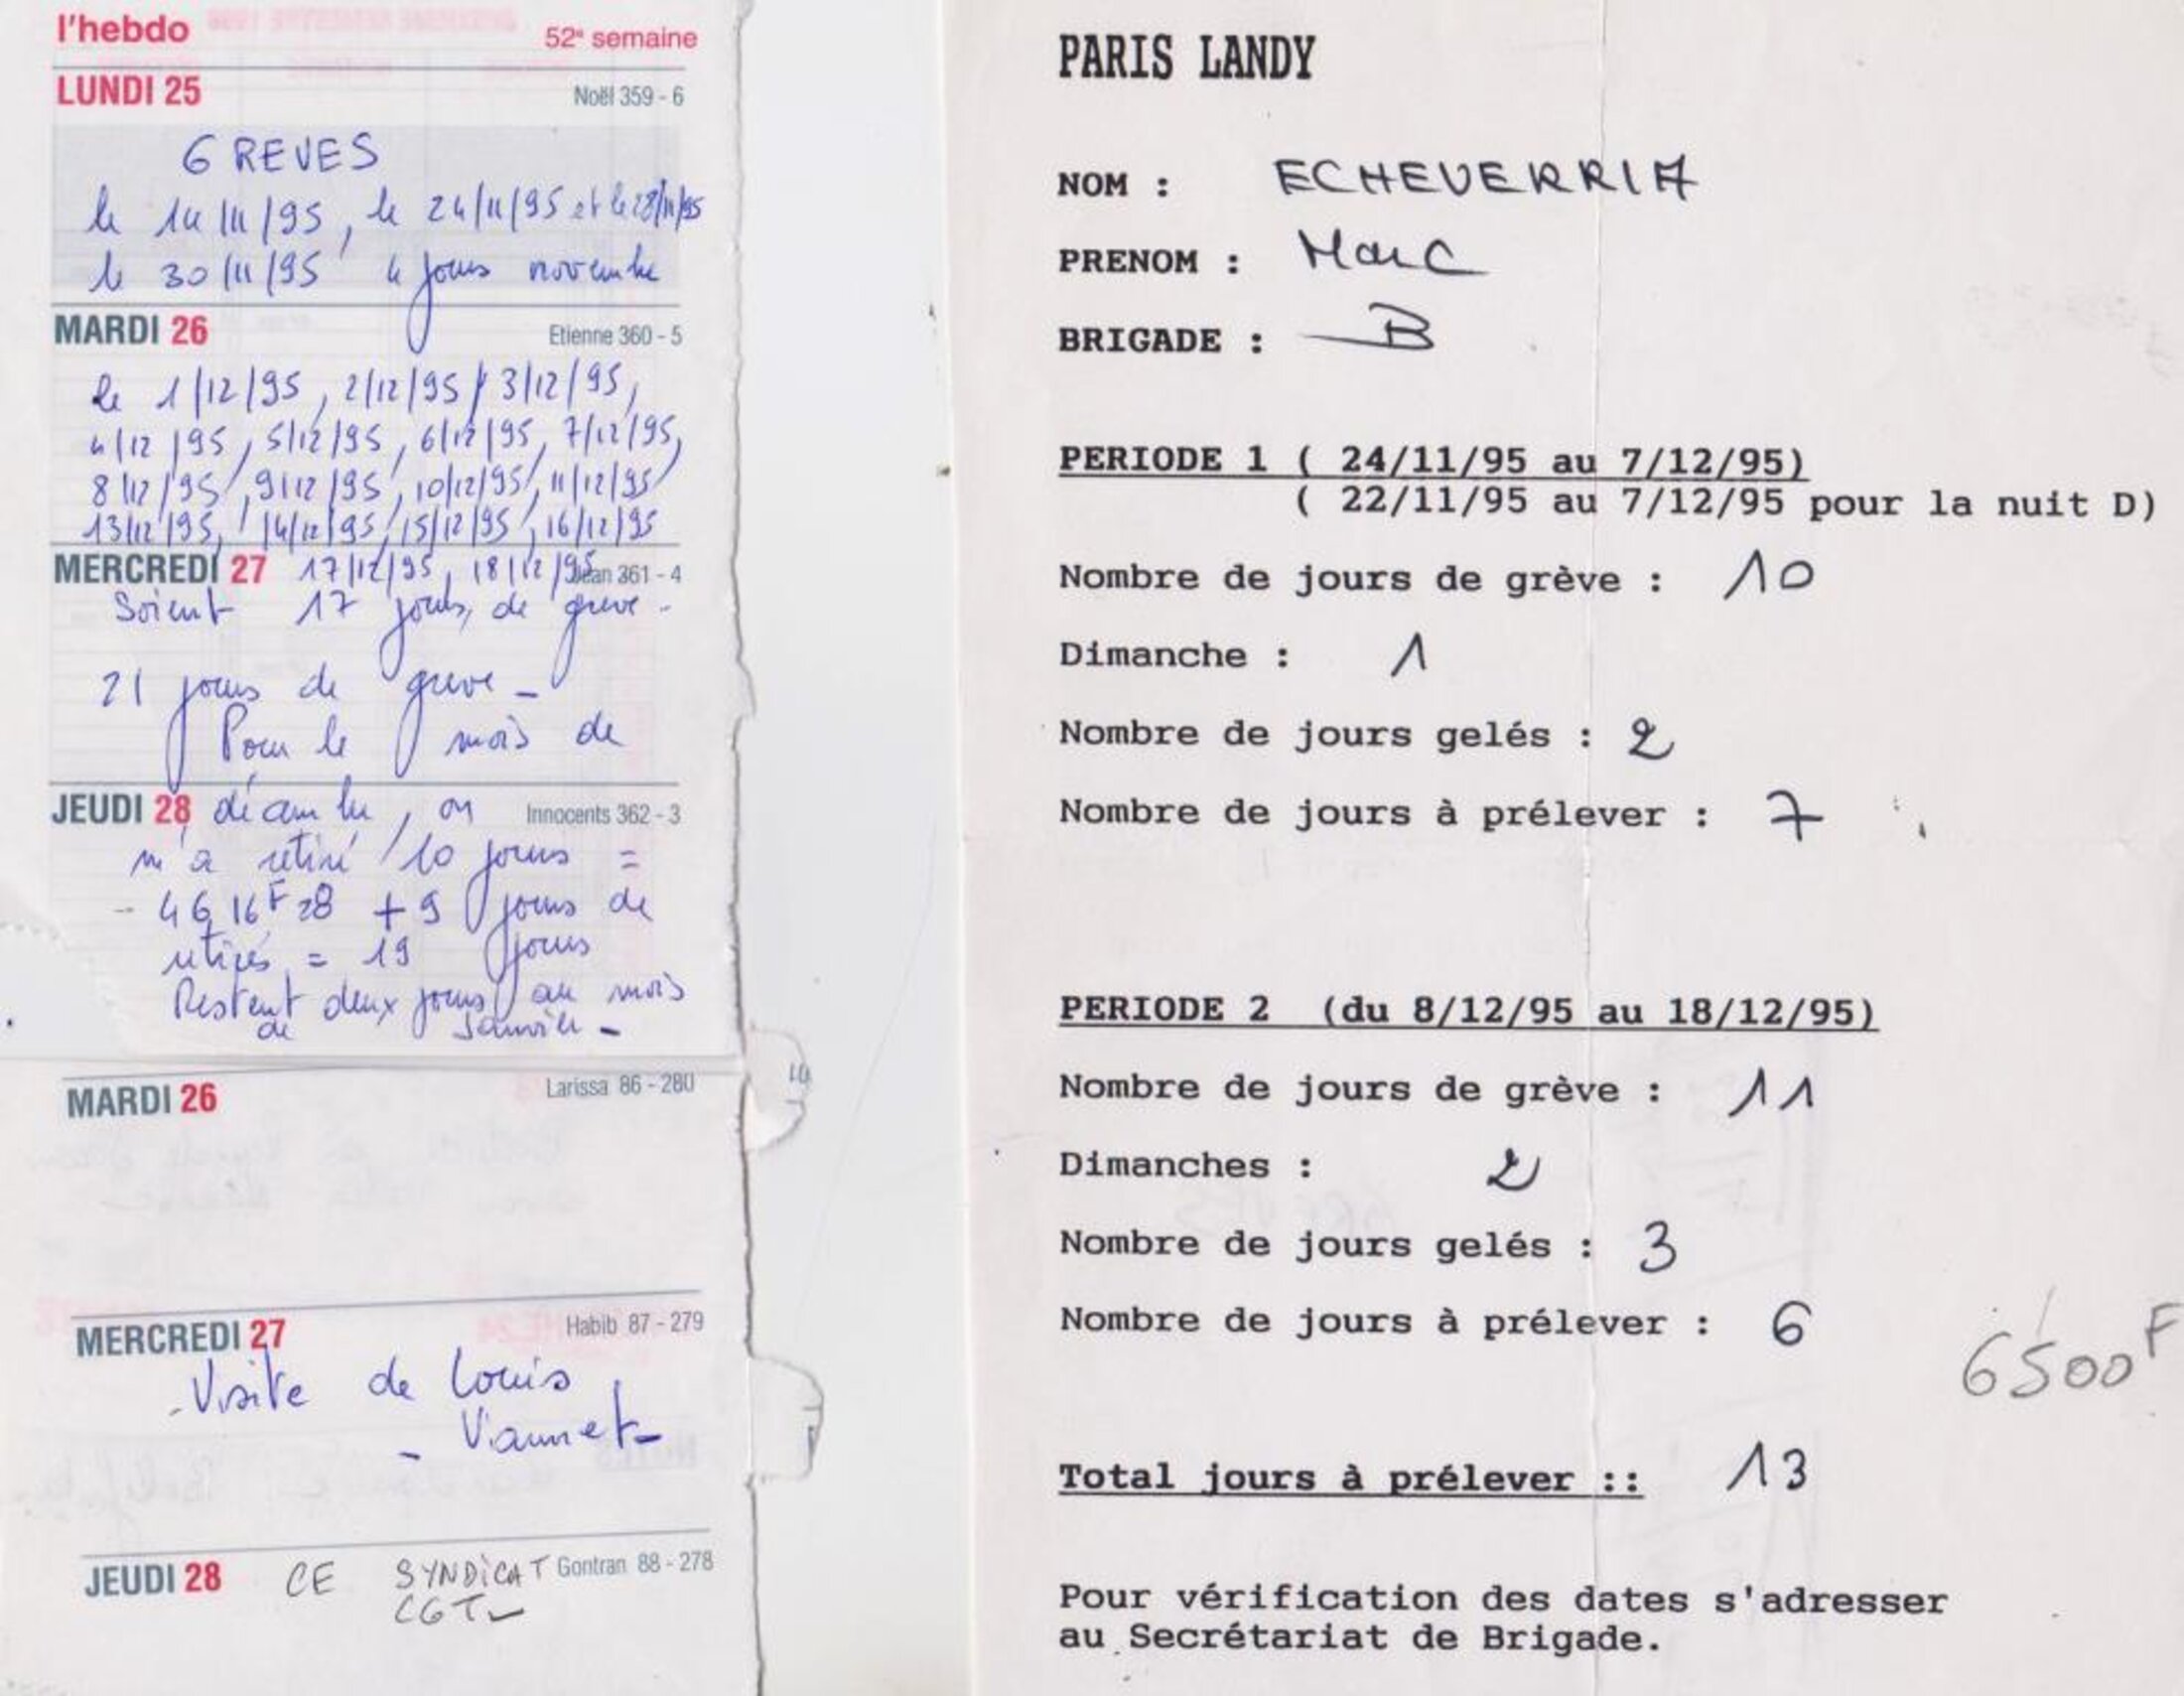 l'hebdo 52e semaine
LUNDI 25 Noël 359 - 6
GREVES
le 14/11/95, le 24/11/95 et le 28/11/95
le 30/11/95 4 jours novembre
MARDI 26 Etienne 360 - 5
le 1/12/95, 2/12/95, 3/12/95,
4/12/95, 5/12/95, 6/12/95, 7/12/95,
8/12/95, 9/12/95, 10/12/95, 11/12/95,
13/12/95, 14/12/95, 15/12/95, 16/12/95
MERCREDI 27 17/12/95, 18/12/95 Jean 361 - 4
Soient 17 jours de greve -
21 jours de greve -
Pour le mois de
JEUDI 28 décembre, on Innocents 362 - 3
m'a retiré 10 jours =
- 4616F28 + 9 jours de
retirés = 19 jours
Restent deux jours au mois
de Janvier -
MARDI 26 Larissa 86 - 280
MERCREDI 27 Habib 87 - 279
Visite de Louis
- Viannet -
JEUDI 28 CE SYNDICAT Gontran 88 - 278
CGT -
PARIS LANDY
NOM : ECHEVERRIA
PRENOM : Marc
BRIGADE : B
PERIODE 1 ( 24/11/95 au 7/12/95)
( 22/11/95 au 7/12/95 pour la nuit D)
Nombre de jours de grève : 10
Dimanche : 1
Nombre de jours gelés : 2
Nombre de jours à prélever : 7
PERIODE 2 (du 8/12/95 au 18/12/95)
Nombre de jours de grève : 11
Dimanches : 2
Nombre de jours gelés : 3
Nombre de jours à prélever : 6
6500F
Total jours à prélever :: 13
Pour vérification des dates s'adresser
au Secrétariat de Brigade.